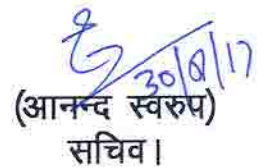 30/8/17
(आनन्द स्वरुप)
सचिव।